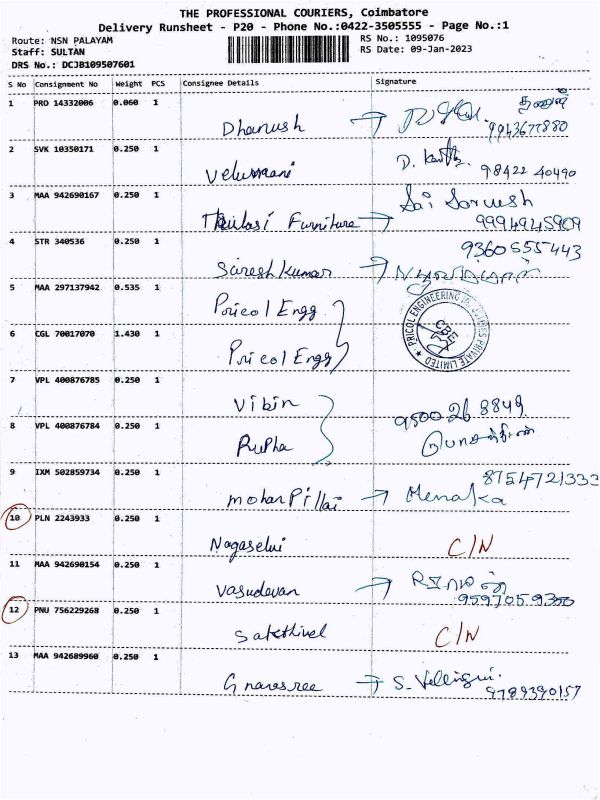 THE PROFESSIONAL COURIERS, Coimbatore
Delivery Runsheet - P20 - Phone No.:0422-3505555 - Page No.:1
Route: NSN PALAYAM RS No.: 1095076
Staff: SULTAN RS Date: 09-Jan-2023
DRS No.: DCJB109507601
S No Consignment No Weight PCS Consignee Details Signature
1 PRO 14332006 0.060 1
Dhanush 9943677880
2 SVK 10350171 0.250 1
Velumani D. 98422 40490
3 MAA 942690167 0.250 1 Sai
Thulasi Furniture 9994945909
4 STR 340536 0.250 1 9360555443
Suresh Kumar
5 MAA 297137942 0.535 1
Pricol Engg
PRICOL ENGINEERING PRIVATE LIMITED CBE
6 CGL 70017070 1.430 1
Pricol Engg
7 VPL 400876785 0.250 1
Vibin 9500 26 8849
8 VPL 400876784 0.250 1
Rupha
9 IXM 502859734 0.250 1 8754721333
Mohan Pillai Menaka
10 PLN 2243933 0.250 1
Nagaselvi C/N
11 MAA 942690154 0.250 1
Vasudevan 9597059350
12 PNU 756229268 0.250 1
Sakthivel C/N
13 MAA 942689960 0.250 1
Gnanasree S. 9789390157